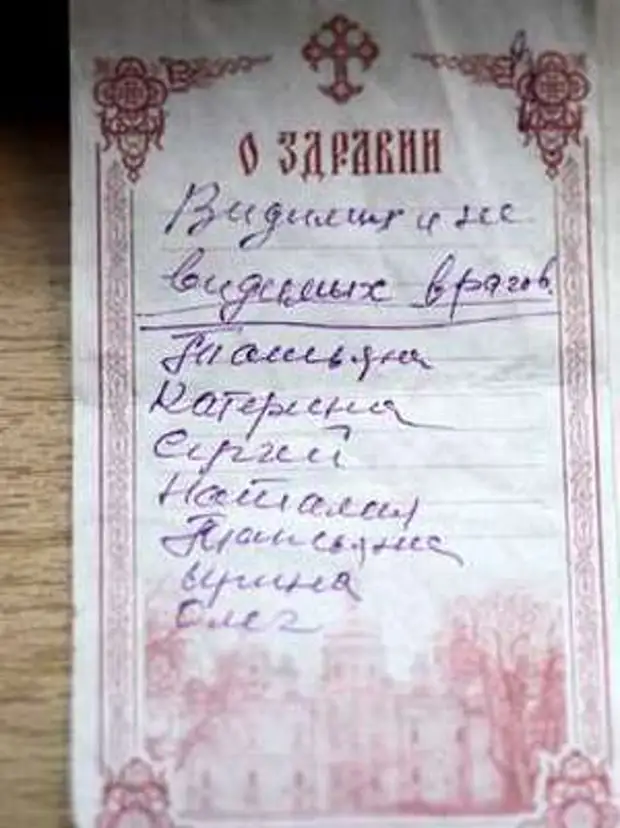 О ЗДРАВИИ
Видимых и не
видимых врагов.
Татьяна
Катерина
Сергей
Наталия
Татьяна
Ирина
Олег